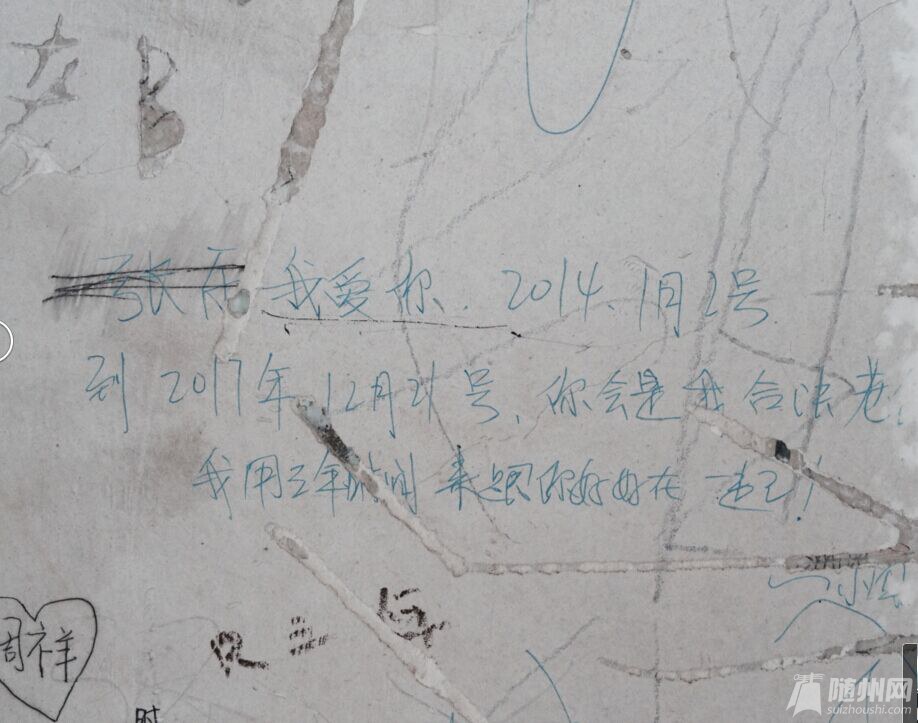 B
张雨 我爱你. 2014.1月2号
到 2017年 12月21号、你会是我合法老
我用三年时间 来跟你好好在一起!
周祥
时
随州网
suizhoushi.com